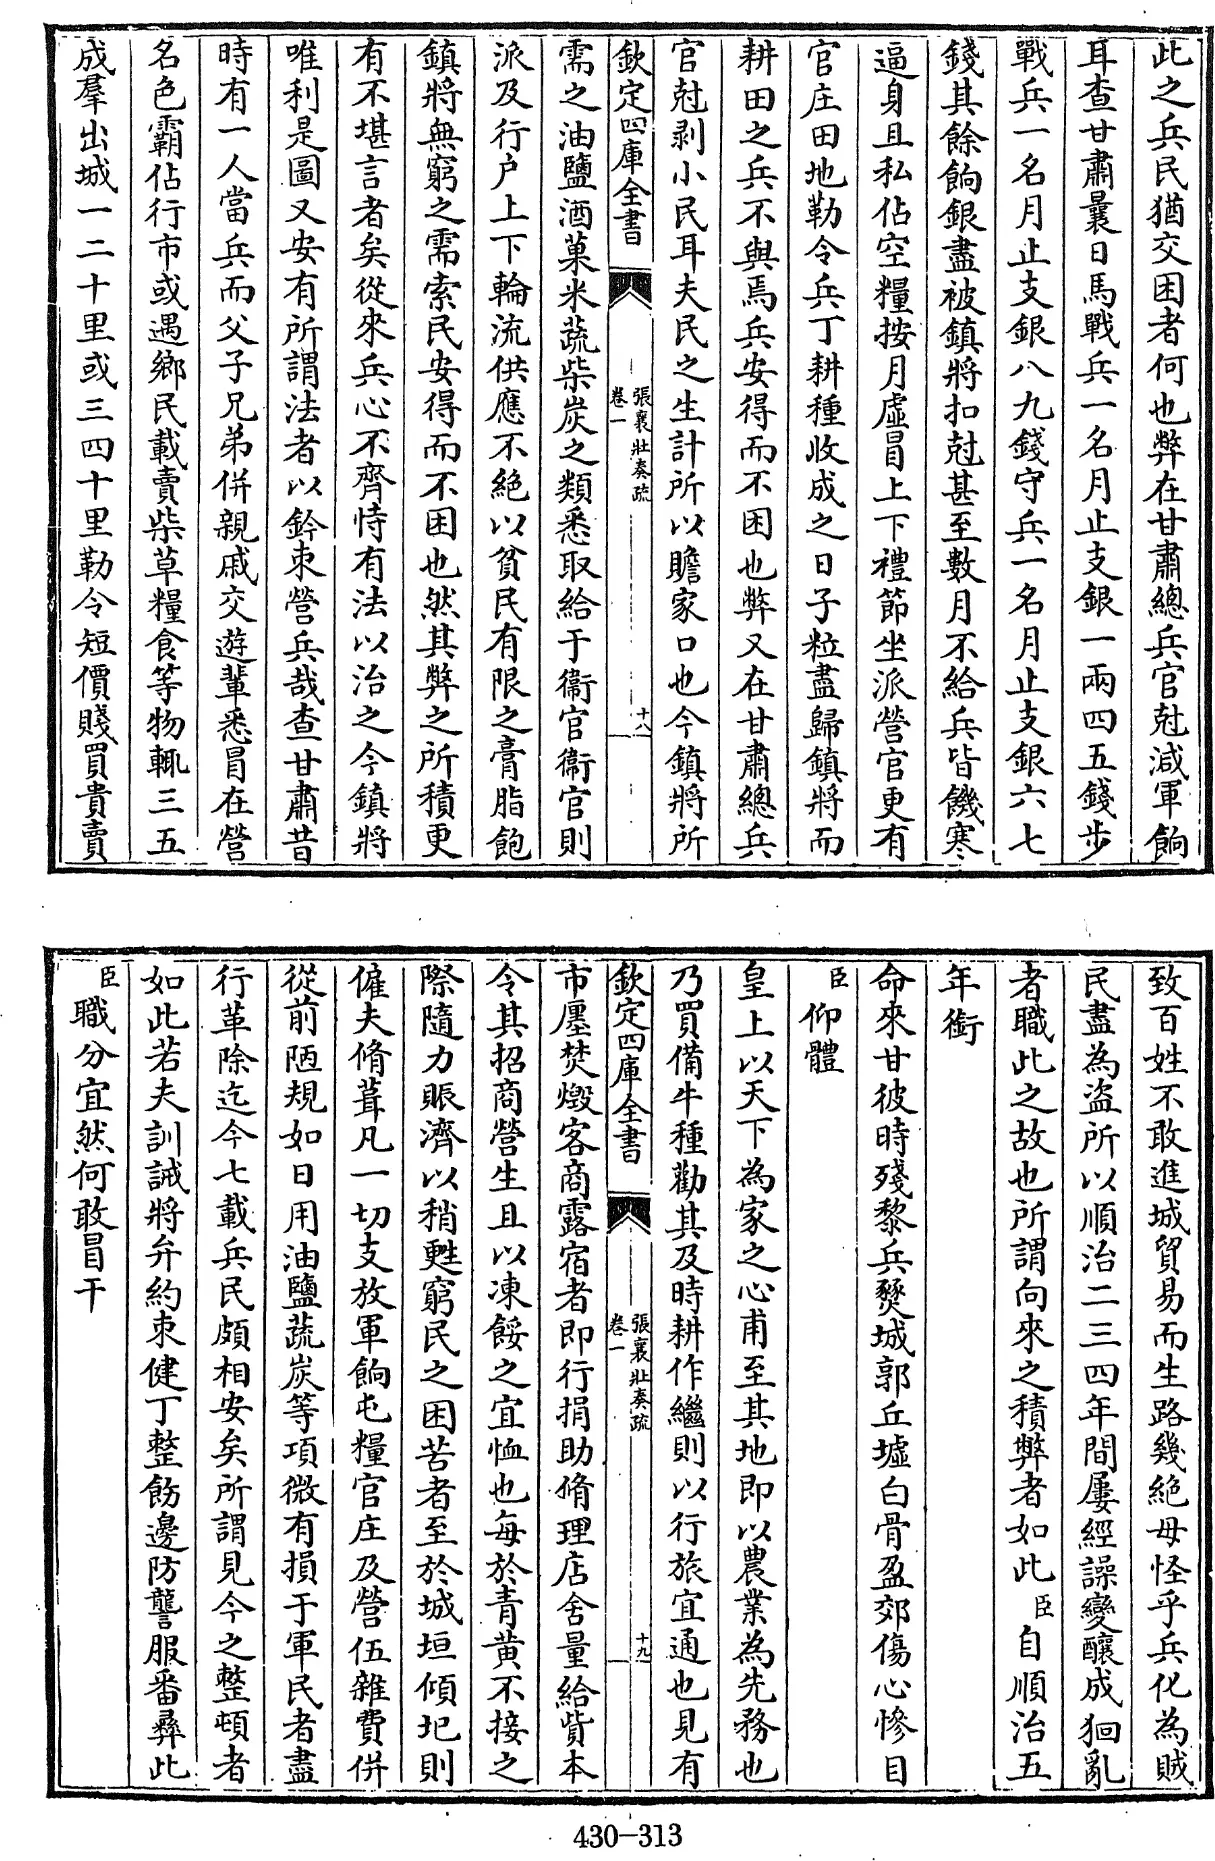 此之兵民猶交困者何也弊在甘肅總兵官尅減軍餉
耳查甘肅曩日馬戰兵一名月止支銀一兩四五錢步
戰兵一名月止支銀八九錢守兵一名月止支銀六七
錢其餘餉銀盡被鎮將扣尅甚至數月不給兵皆饑寒
逼身且私佔空糧按月虛冒上下禮節坐派營官更有
官庄田地勒令兵丁耕種收成之日子粒盡歸鎮將而
耕田之兵不與焉兵安得而不困也弊又在甘肅總兵
官尅剥小民耳夫民之生計所以贍家口也今鎮將所
欽定四庫全書
張襄壯奏疏
卷一
十八
需之油鹽酒菓米蔬柴炭之類悉取給于衞官衞官則
派及行户上下輪流供應不絶以貧民有限之膏脂飽
鎮將無窮之需索民安得而不困也然其弊之所積更
有不堪言者矣從來兵心不齊恃有法以治之今鎮將
唯利是圖又安有所謂法者以鈐束營兵哉查甘肅昔
時有一人當兵而父子兄弟併親戚交遊輩悉冒在營
名色霸佔行市或遇鄉民載賣柴草糧食等物輙三五
成羣出城一二十里或三四十里勒令短價賤買貴賣
致百姓不敢進城貿易而生路幾絶毋怪乎兵化為賊
民盡為盜所以順治二三四年間屢經譟變釀成猖亂
者職此之故也所謂向來之積弊者如此臣自順治五
年銜
命來甘彼時殘黎兵燹城郭丘墟白骨盈郊傷心慘目
臣仰體
皇上以天下為家之心甫至其地即以農業為先務也
乃買備牛種勸其及時耕作繼則以行旅宜通也見有
欽定四庫全書
張襄壯奏疏
卷一
十九
市廛焚燬客商露宿者即行捐助脩理店舍量給貲本
令其招商營生且以凍餒之宜恤也每於青黄不接之
際隨力賑濟以稍甦窮民之困苦者至於城垣傾圮則
僱夫脩葺凡一切支放軍餉屯糧官庄及營伍雜費併
從前陋規如日用油鹽蔬炭等項微有損于軍民者盡
行革除迄今七載兵民頗相安矣所謂見今之整頓者
如此若夫訓誡將弁約束健丁整飭邊防讋服番彝此
臣職分宜然何敢冒干
430-313